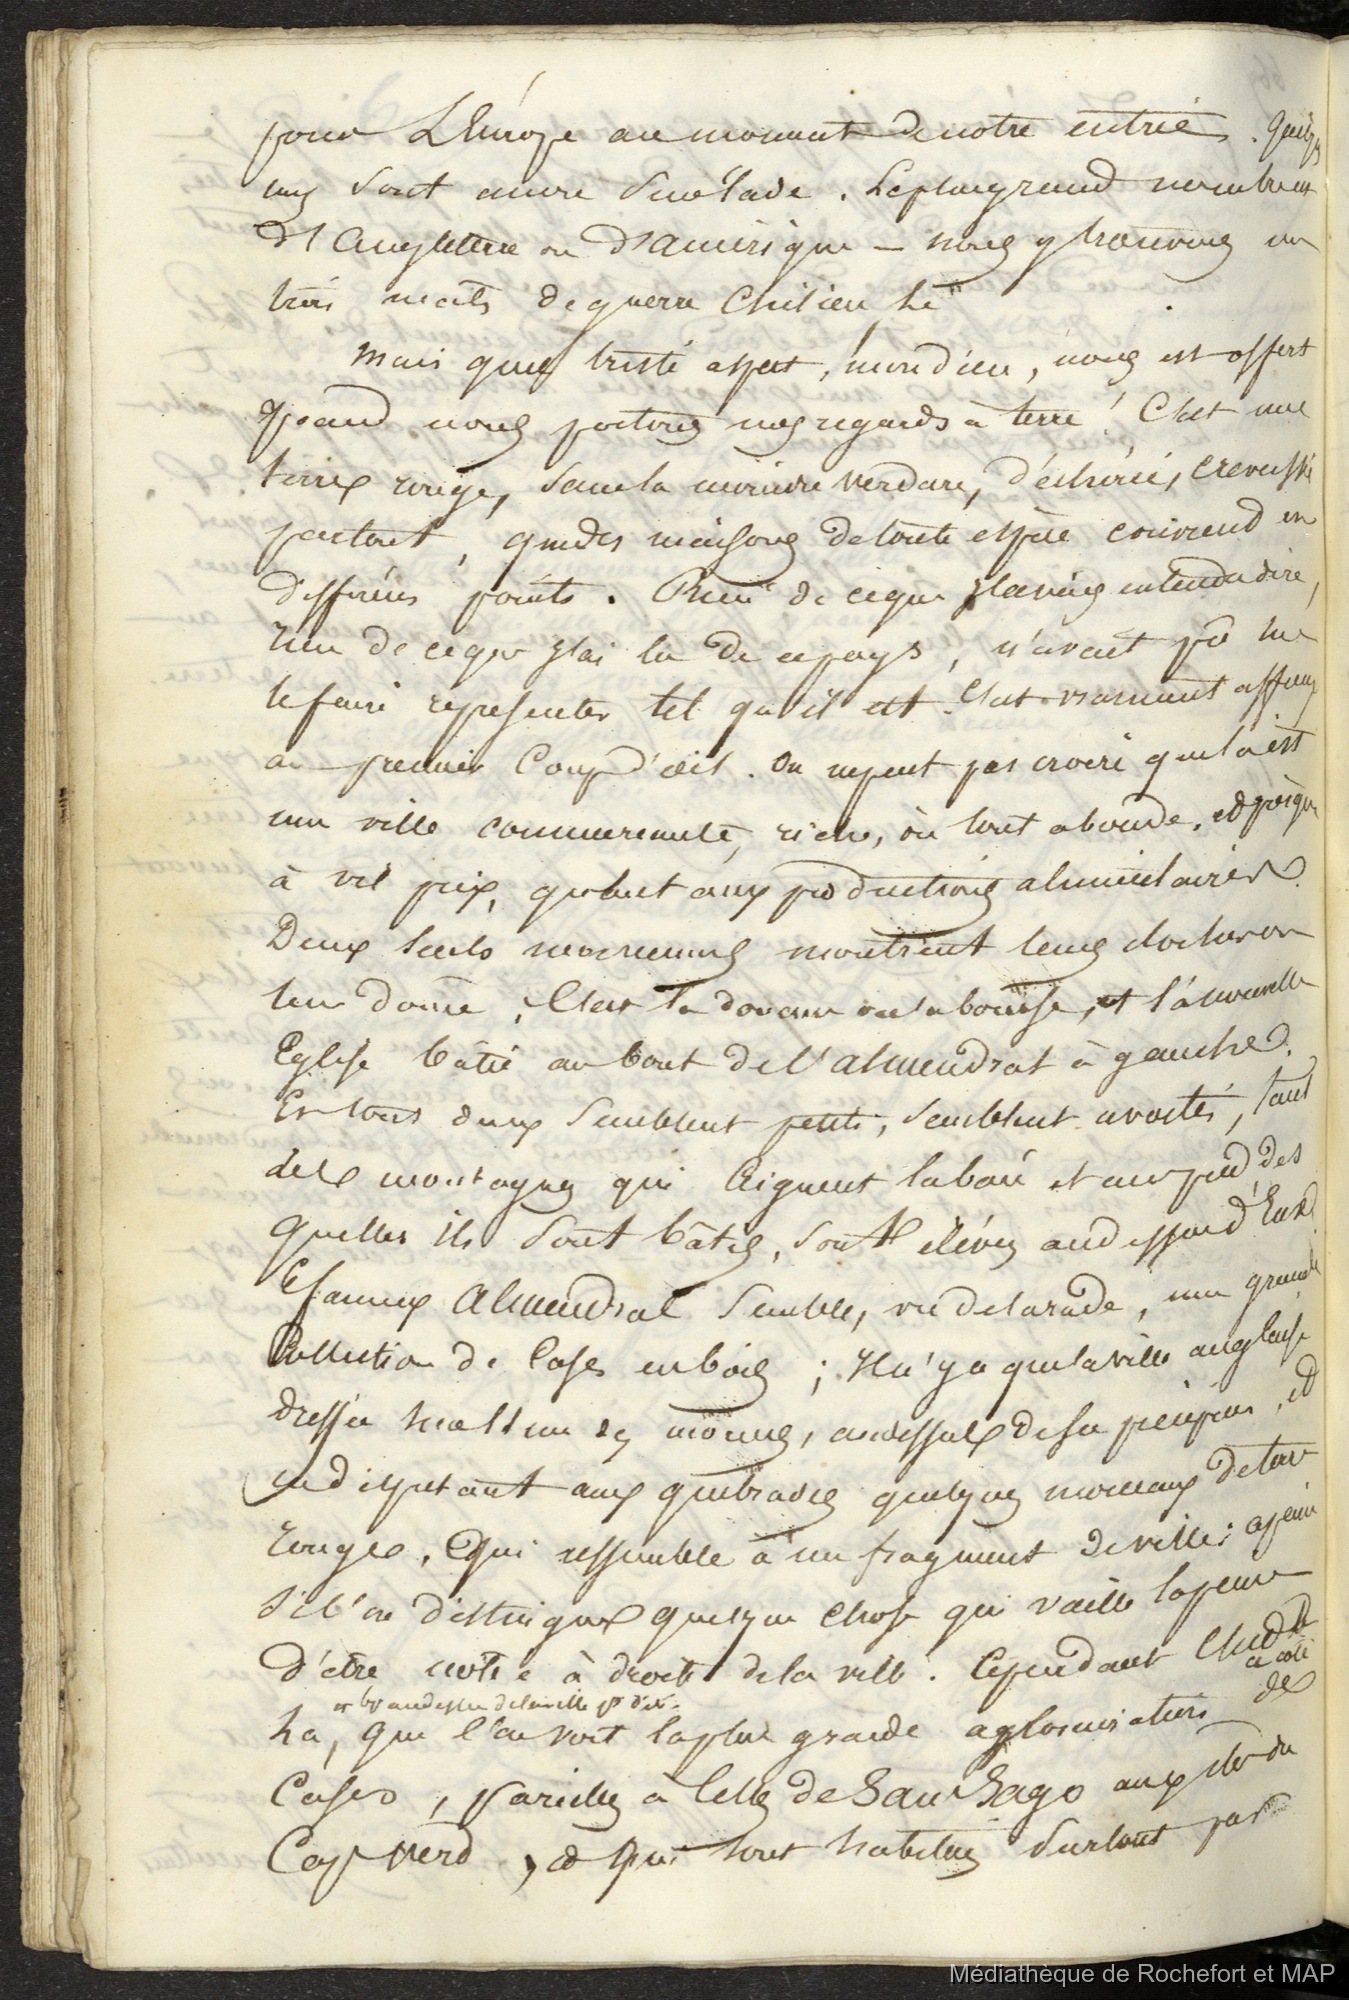 pour L'Europe au moment de notre entrée. Quelqu
uns sont encore sur rade. Le plus grand nombre est
d'Angleterre ou d'amérique — nous y trouvons un
trois mats de guerre Chilien
Mais quel triste aspect, mon dieu, nous est offert
quand nous portons nos regards à terre! C'est une
terre rouge, sans la moindre verdure, déchirée, crevassée
partout, que des maisons de toute espèce couvrent en
différens points. Rien de ce que j'avais entendu dire,
rien de ce que j'ai lu de ce pays, n'avait pû me
le faire representer tel qu'il est. C'est vraiment affreux
au premier Coup d'œil. On ne peut pas croire que là est
une ville commercante, riche, où tout abonde, et presque
à vil prix, quant aux productions alimentaires.
Deux seuls monumens montrent leur clocher ou
leur dome; C'est la douane ou la bourse, et la nouvelle
Eglise bâtie au bout de l'almendral à gauche.
Et tous deux semblent petits, semblent avortés, tant
les montagnes qui ceignent la baie et au pied des
quelles ils sont bâtis, sont élévées au dessus d'Eux.
Ce fameux Almendral semble, vu de la rade, une grande
Collection de Cases en bois; Il n'y a que la ville anglaise
dressée sur les mornes, au dessus de
en disputant aux quebradas quelques morceaux de terre
rouge, qui ressemble à un fragment de ville: a peine
si l'on distingue quelque chose qui vaille la peine
d'être noté à droite de la ville. Cependant C'est de ce côté
et au dessus de la ville pr dire
là, que l'on voit la plus grande aglomération de
Cases, pareilles à celles de San Yago aux iles du
Cap Verd, et qui sont habitées surtout par
Médiathèque de Rochefort et MAP